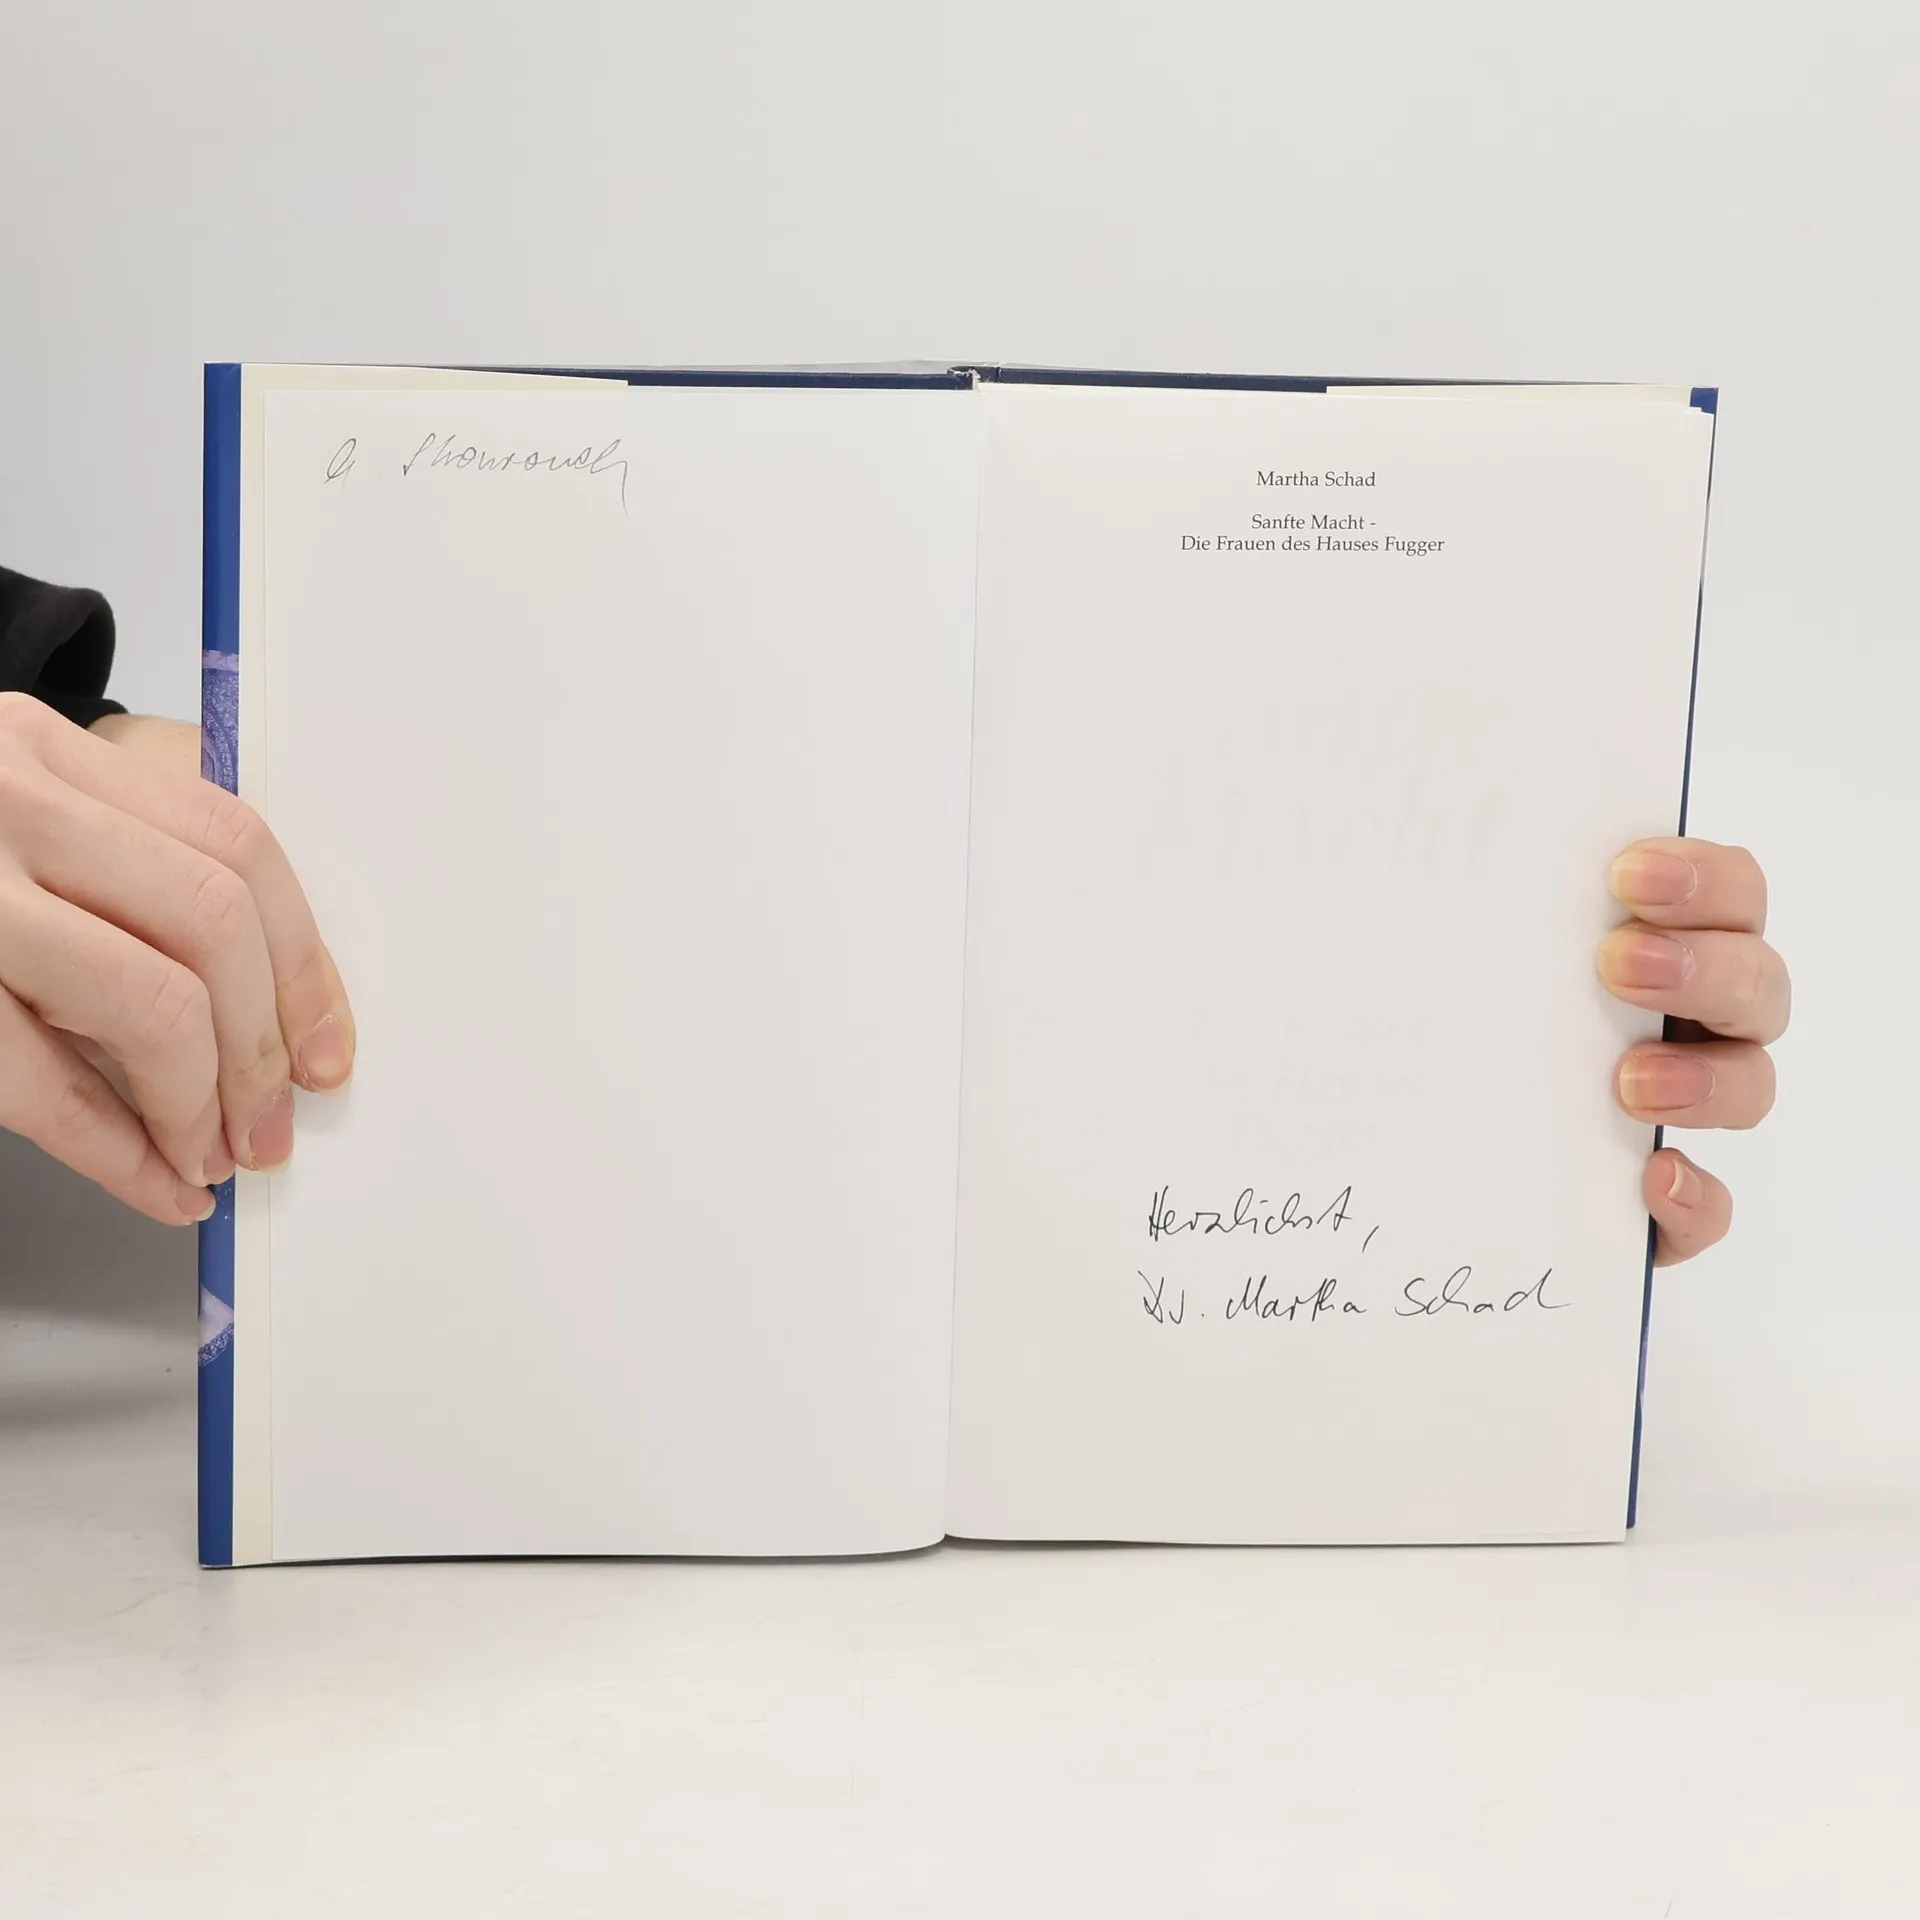 Martha Schad
Sanfte Macht -
Die Frauen des Hauses Fugger
Herzlichst,
Dr. Martha Schad